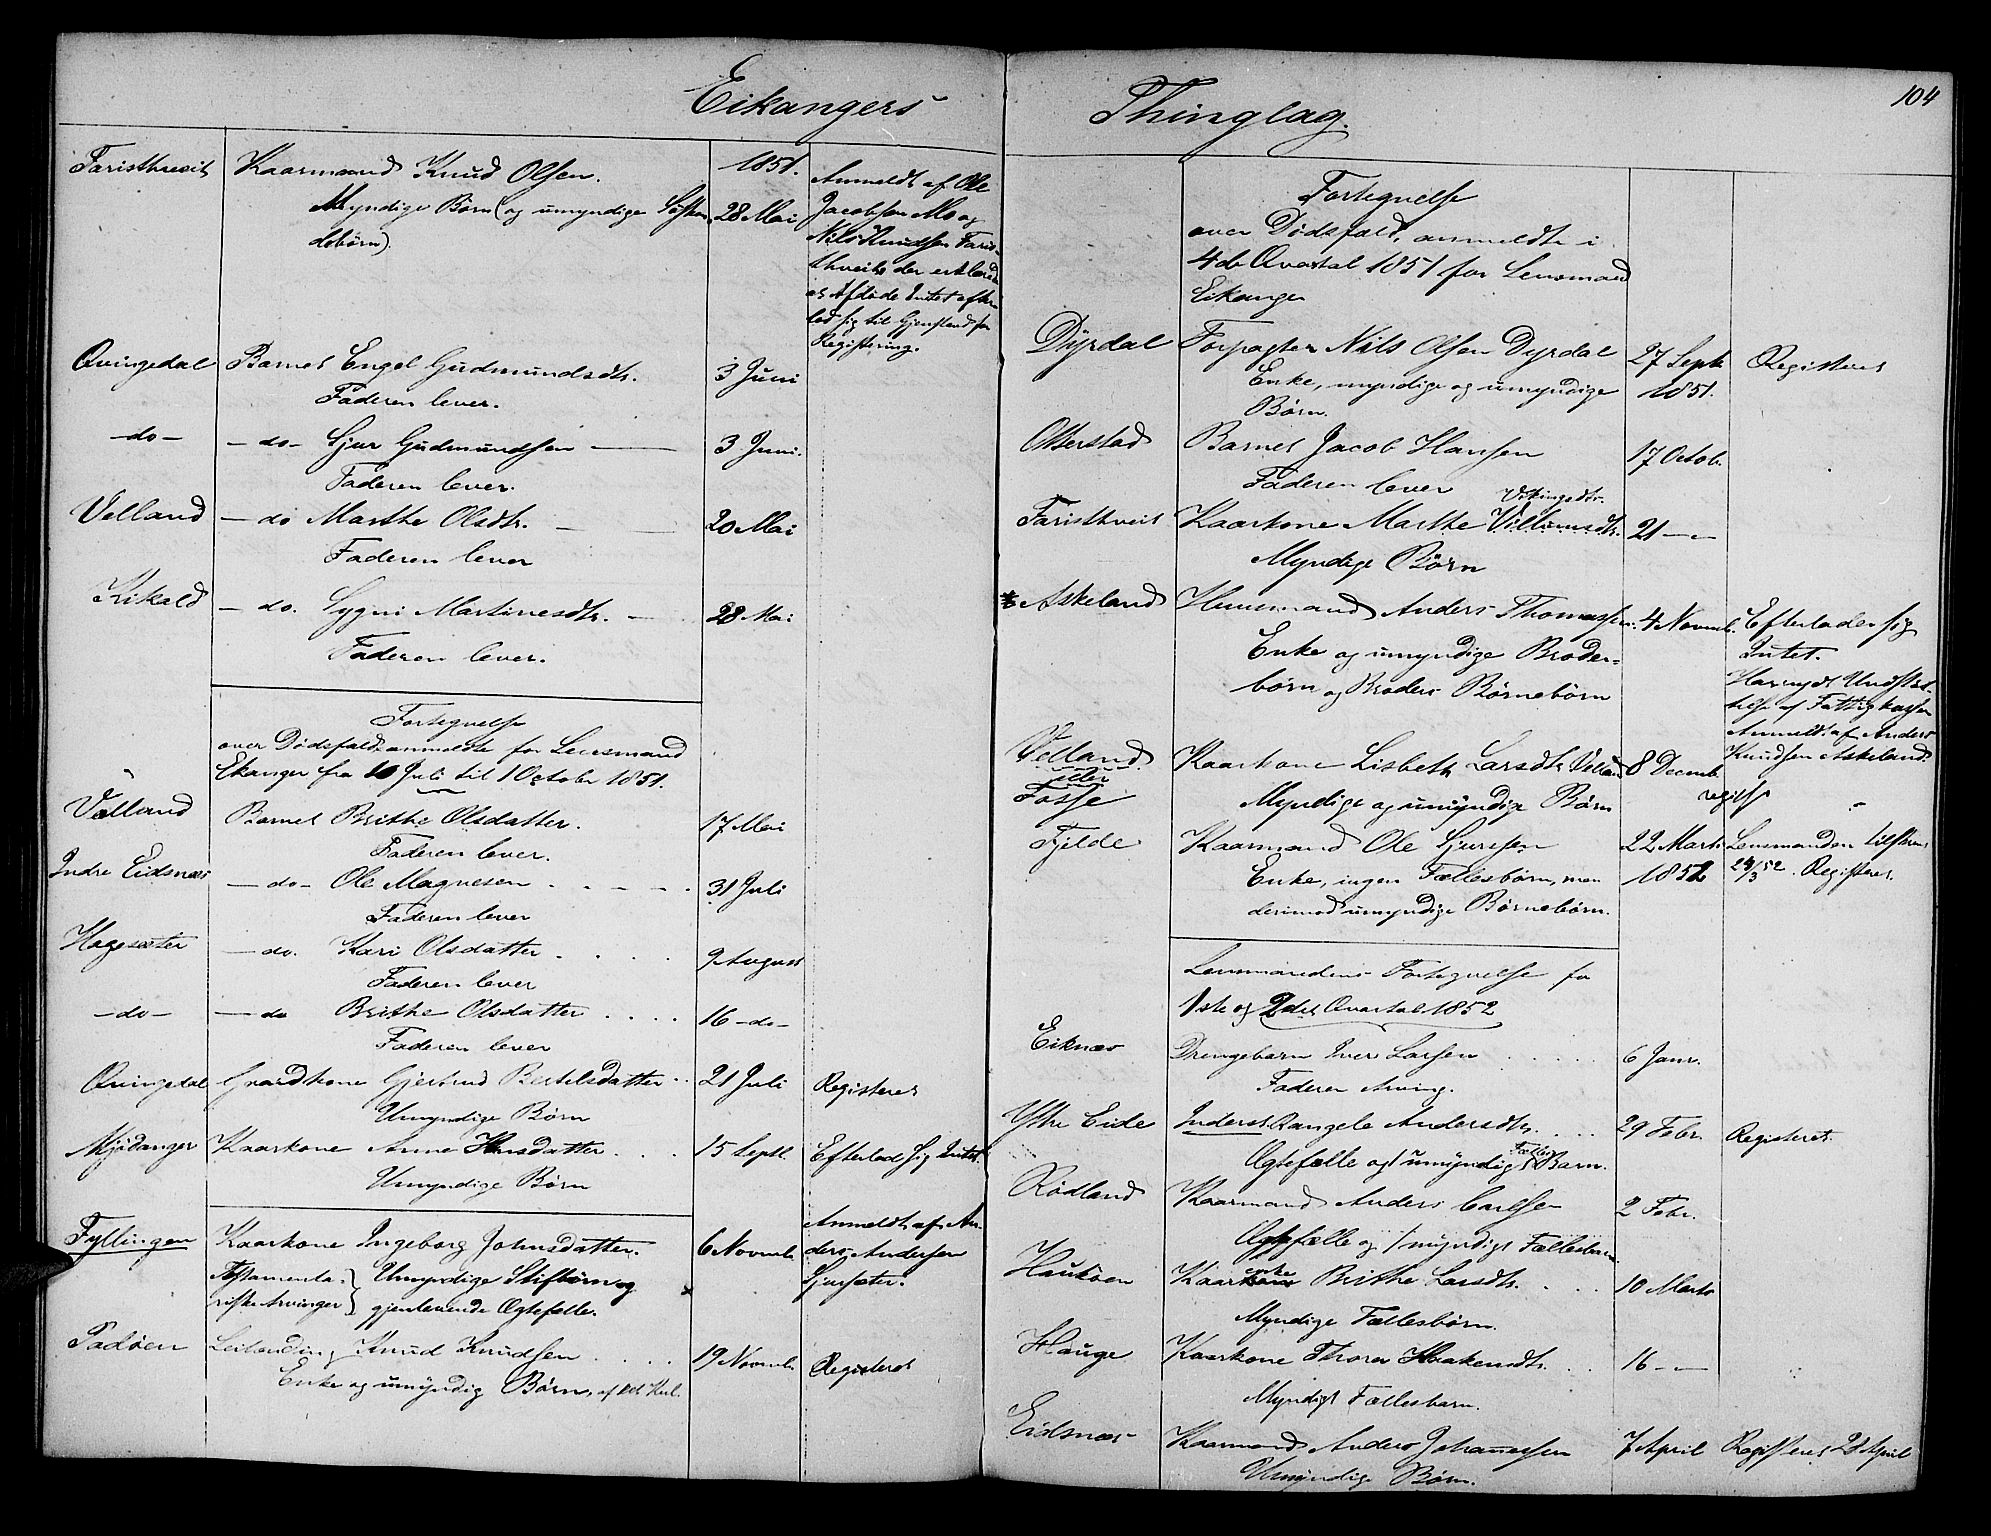 Eikangers
Faristhveit Kaarmand Knud Olsen. 1851. Anmeldt af Ole
Myndige Børn (og umyndige Søsken- 28 Mai Jacobsen Mo og
debørn). Nils Knudsen Faris-
thveit, der erklærede
at Afdøde Intet efter-
lod sig til Gjenstand for
Registering.
Qvingedal Barnet Engel Gudmundsdtr. 3 Juni
Faderen lever.
-do- -do- Sjur Gudmundsen 3 Juni.
Faderen lever.
Velland -do Marthe Olsdtr. 20 Mai
Faderen lever
Kikald -do. Sygni Martinesdtr. 28 Mai
Faderen lever.
Fortegnelse
over Dødsfald anmeldte for Lensmand
Ekanger fra 10 Juli til 1 October 1851.
Velland Barnet Brithe Olsdatter. 17 Mai
Faderen lever.
Indre Eidsnæs -do- Ole Magnesen 31 Juli
Faderen lever
Hagesæter -do. Kari Olsdatter 9 August
Faderen lever
-do- -do Brithe Olsdatter 16 -do-
Faderen lever
Qvingedal Gaardkone Gjertrud Bertelsdatter 21 Juli Registeret
Umyndige Børn
Mjødanger Kaarkone Anne Hansdatter 15 Septb. Efterlod sig Intet.
Umyndige Børn
Fyllingen Kaarkone Ingeborg Johnsdatter. 6 Novemb. Anmeldt af An-
Testamenta- } Umyndige Stifbørn og ders Andersen
riske Arvinger } gjenlevende Ægtefælle. Sjursæter.
Padøen Leilænding Knud Knudsen 19 Novemb. Registeret
Enke og umyndig Børn, af det Kul.
Thinglag.
104
Fortegnelse
over Dødsfald, anmeldte i
4de Qvartal 1851 for Lensmand
Eikanger
Dyrdal Forpagter Nils Olsen Dyrdal 27 Septb. Registeret
Enke, myndige og umyndige 1851.
Børn.
Otterstad Barnet Jacob Hansen 17 Octob.
Faderen lever
Vikingsdtr.
Faristhveit Kaarkone Marthe Villumsdtr. 21 -"-
Myndige Børn
Askeland Huusmand Anders Thomassen. 4 Novemb. Efterlader sig
Enke og umyndige Broder- Intet.
børn og Broders Børnebørn Har nydt Understøt-
telse af Fattigkassen
Anmeldt af Anders
Velland Kaarkone Lisbeth Larsdtr Velland 8 Decemb. Knudsen Askeland.
eller
Fosse Myndige og umyndige Børn regist
Fjelde Kaarmand Ole Sjursen 22 Marts Lensmanden tilskrevet
Enke, ingen Fællesbørn, men 1852 24/3 52. Registeret.
derimod umyndige Børnebørn.
Lensmandens Fortegnelse for
1ste og 2det Qvartal 1852
Eiknæs Drengebarn Iver Larsen 6 Janr.
Faderen Arving.
Ytre Eide Inderst Rangele Andersdtr. 29 Febr. Registeret.
Fælles
Ægtefælle og 1 umyndig Barn.
Rødland Kaarmand Anders Carlsen 2 Febr.
Ægtefælle og 1 myndigt Fællesbarn
enke
Haukøen Kaarkone Brithe Larsdtr. 10 Marts
Myndige Fællesbørn.
Hauge Kaarkone Thora Haakensdtr. 16 -"-
Myndigt Fællesbarn.
Eidsnæs Kaarmand Anders Johannessen 7 April Registeret 21 April
Umyndige Børn.